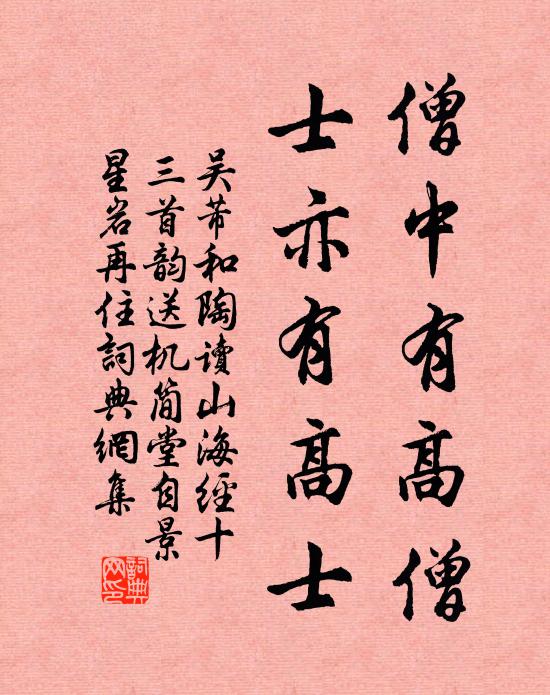 僧中有高僧
士亦有高士
吴芾和陶读山海經十
三首韵送机简堂自景
星岩再住詞典網集
詞典网印